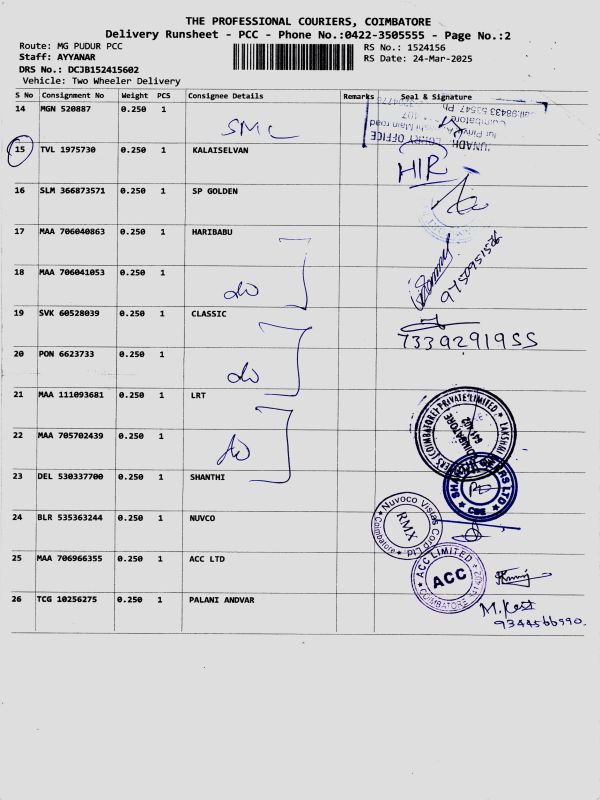 THE PROFESSIONAL COURIERS, COIMBATORE
Delivery Runsheet - PCC - Phone No.:0422-3505555 - Page No.:2
Route: MG PUDUR PCC
RS No.: 1524156
Staff: AYYANAR
RS Date: 24-Mar-2025
DRS No.: DCJB152415602
Vehicle: Two Wheeler Delivery
S No Consignment No Weight PCS Consignee Details Remarks Seal & Signature
14 MGN 520887 0.250 1
SMC
15 TVL 1975730 0.250 1 KALAISELVAN
HIR
16 SLM 366873571 0.250 1 SP GOLDEN
17 MAA 706040863 0.250 1 HARIBABU
9750951526
18 MAA 706041053 0.250 1
do
19 SVK 60528039 0.250 1 CLASSIC
7339291955
20 PON 6623733 0.250 1
do
21 MAA 111093681 0.250 1 LRT
22 MAA 705702439 0.250 1
do
23 DEL 530337700 0.250 1 SHANTHI
CBE
24 BLR 535363244 0.250 1 NUVCO
Nuvoco Vistas Corp Ltd
RMX
Coimbatore
25 MAA 706966355 0.250 1 ACC LTD
ACC LIMITED
ACC
COIMBATORE
26 TCG 10256275 0.250 1 PALANI ANDVAR
9344566990.